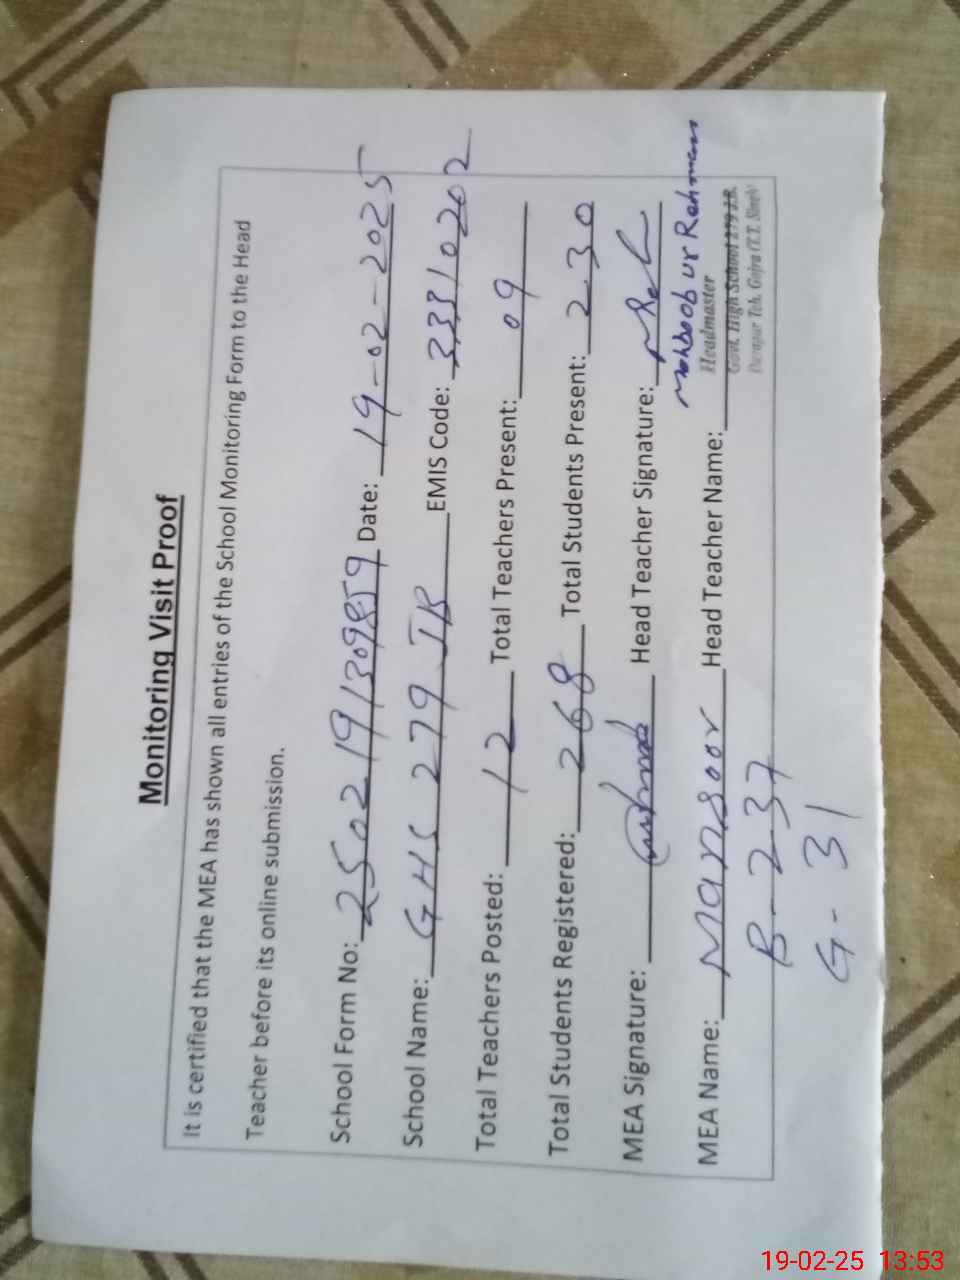 Monitoring Visit Proof
It is certified that the MEA has shown all entries of the School Monitoring Form to the Head
Teacher before its online submission.
School Form No: 2502191309859 Date: 19-02-2025
School Name: GHS 279 JB EMIS Code: 33310202
Total Teachers Posted: 12 Total Teachers Present: 09
Total Students Registered: 268 Total Students Present: 230
MEA Signature: Head Teacher Signature:
Mahboob ur Rehman
MEA Name: Mansoor Head Teacher Name:
Headmaster
Govt. High School 279 J.B.
Teh. Gojra (T.T. Singh)
B-237
G-31
19-02-25 13:53